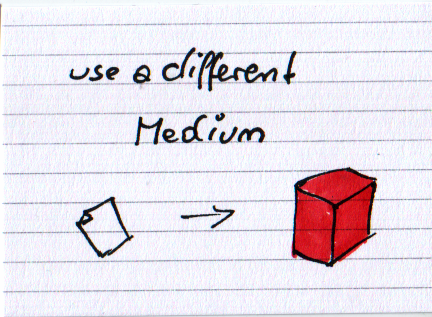 use a different
Medium